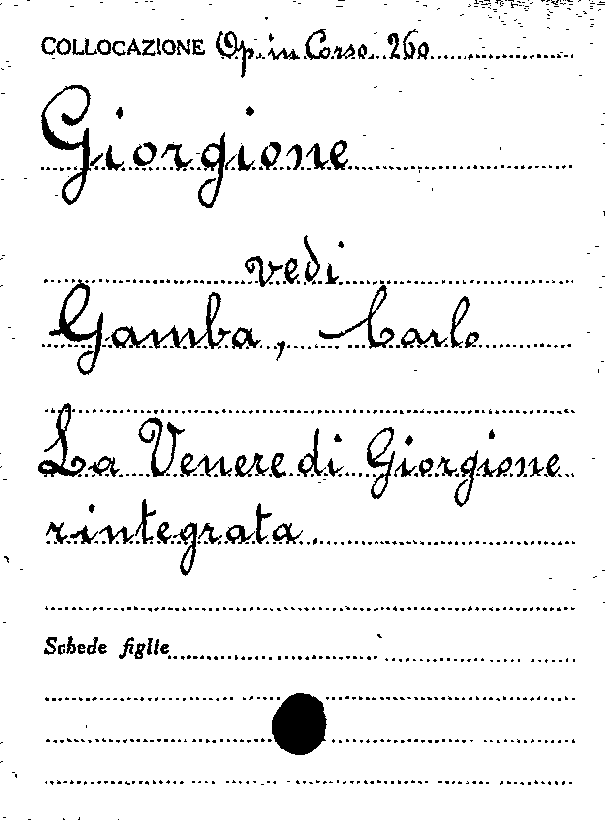 COLLOCAZIONE Op. in Corso. 260
Giorgione
vedi
Gamba, Carlo
La Venere di Giorgione
rintegrata.
Schede figlie